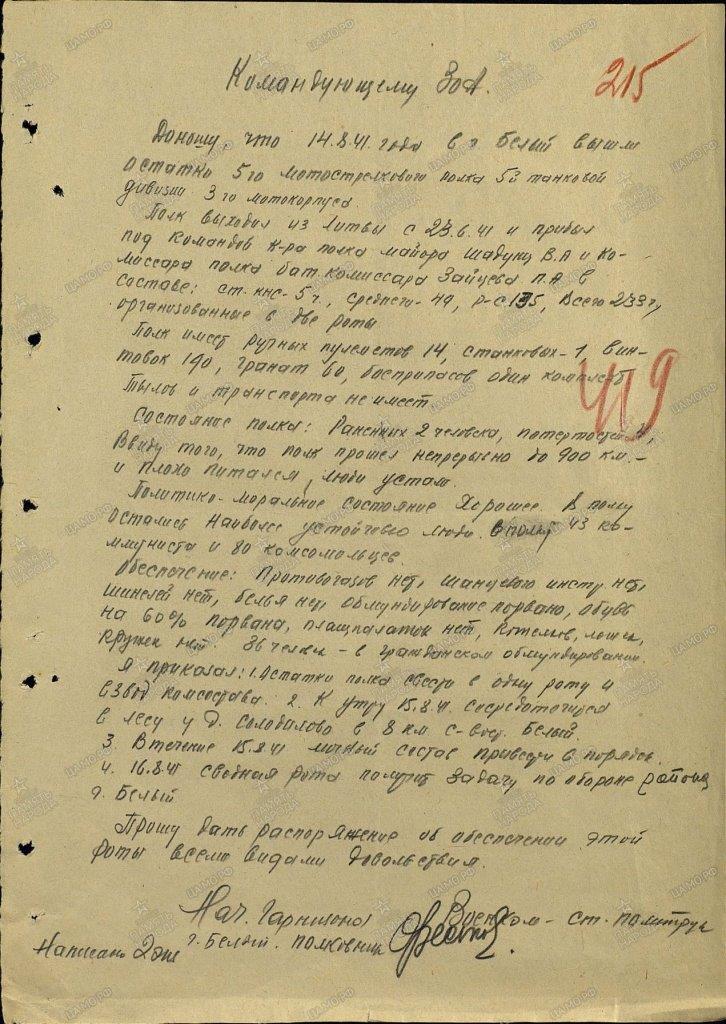 Командующему 30А.
215
Доношу, что 14.8.41 года в г Белый вышли
остатки 5го мотострелкового полка 5й танковой
дивизии 3го мотокорпуса.
Полк выходил из Литвы с 23.6.41 и прибыл
под командов к-ра полка майора Шадунц В.А и Ко-
миссара полка бат. комиссара Зайцева П.А в
составе: ст. ннс- 5ч., среднего- 49, р-с 135, Всего 233ч,
организованные в две роты
Полк имеет ручных пулеметов 14, станковых-1, вин-
товок 190, гранат 60, боеприпасов один комплект
Тылов и транспорта не имеет.
419
Состояние полка: Раненных 2 человека, потертостей
Ввиду того, что полк прошел непрерывно до 900 км.-
и плохо питался, люди устали.
Политико-моральное состояние Хорошее. В полку
остались наиболее устойчевые люди. В полку 43 ко-
ммуниста и 80 комсомольцев.
Обеспечение: Противогазов нет, шанцевого инстр нет,
шинелей нет, белья нет, обмундирование порвано, обувь
на 60% порвана, плащпалаток нет, Котелков, ложек,
кружек нет. 36 человек - в гражданском обмундировании.
Я приказал: 1. Остатки полка свести в одну роту и
взвод комсостава. 2. К утру 15.8.41 сосредоточится
в лесу у д. Солодилово в 8 км с-вост. Белый.
3. В течение 15.8.41 личный состав привести в порядок.
4. 16.8.41 сводная рота получит задачу по обороне района
г. Белый
Прошу дать распоряжение об обеспечении этой
роты всеми видами довольствия.
Нач. Гарнизона
Военком - ст. политрук
г. Белый. полковник
Написано 2 экз